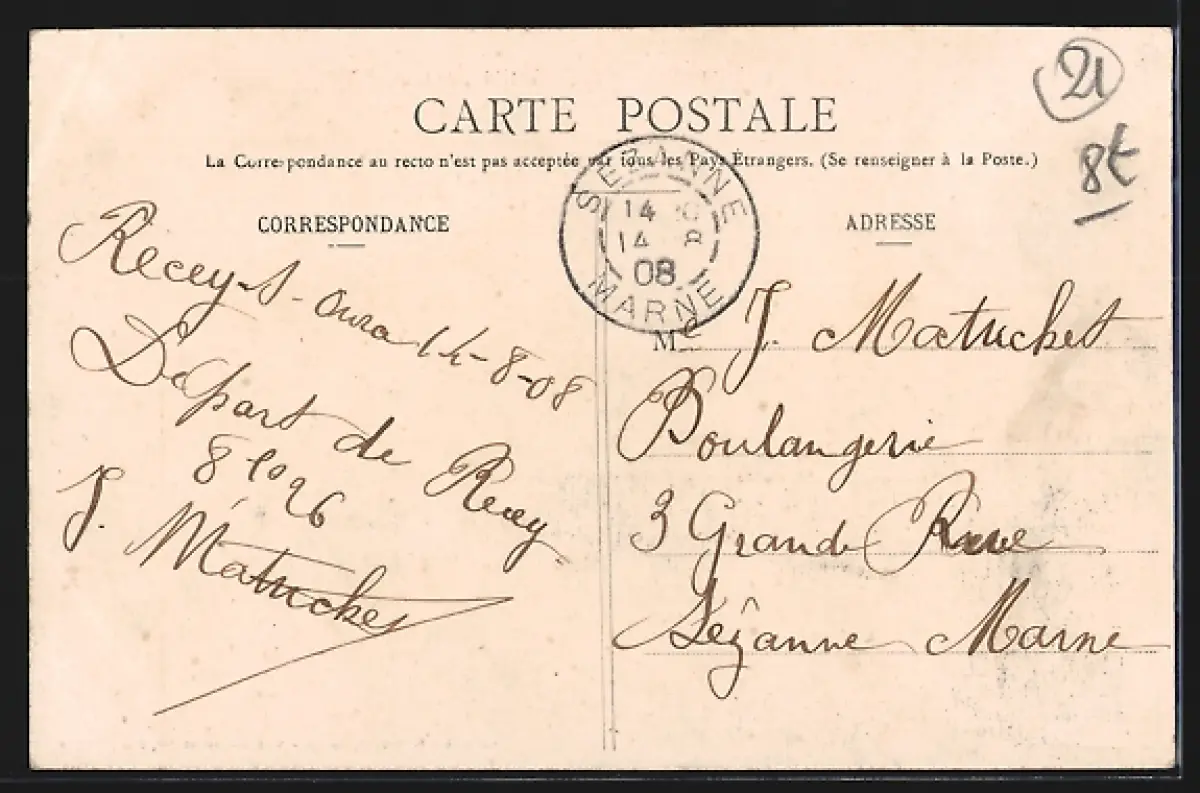 CARTE POSTALE
La Correspondance au recto n'est pas acceptée par tous les Pays Étrangers. (Se renseigner à la Poste.)
21
8t
SEZANNE
14
14 8
08
MARNE
CORRESPONDANCE
Recey-s-Ource 14-8-08
Départ de Recey
8
26
J. Matuchet
ADRESSE
Me J. Matuchet
Boulangerie
3 Grande Rue
Sézanne Marne